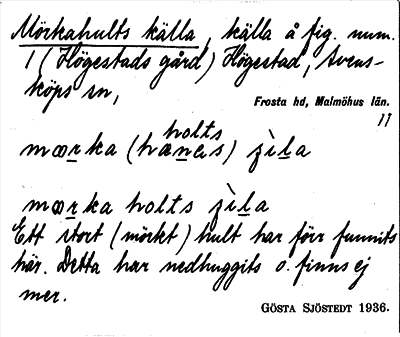 Mörkahults källa, källa å fig. num.
1 (Högestads gård) Högestad, Svens-
köps sn,
Frosta hd, Malmöhus län.
11
holts
mœrka (hœnas) ȷ̀ila
mœrka holts ȷ̀ila
Ett stort (mörkt) hult har förr funnits
här. Detta har nedhuggits o. finns ej
mer.
GÖSTA SJÖSTEDT 1936.